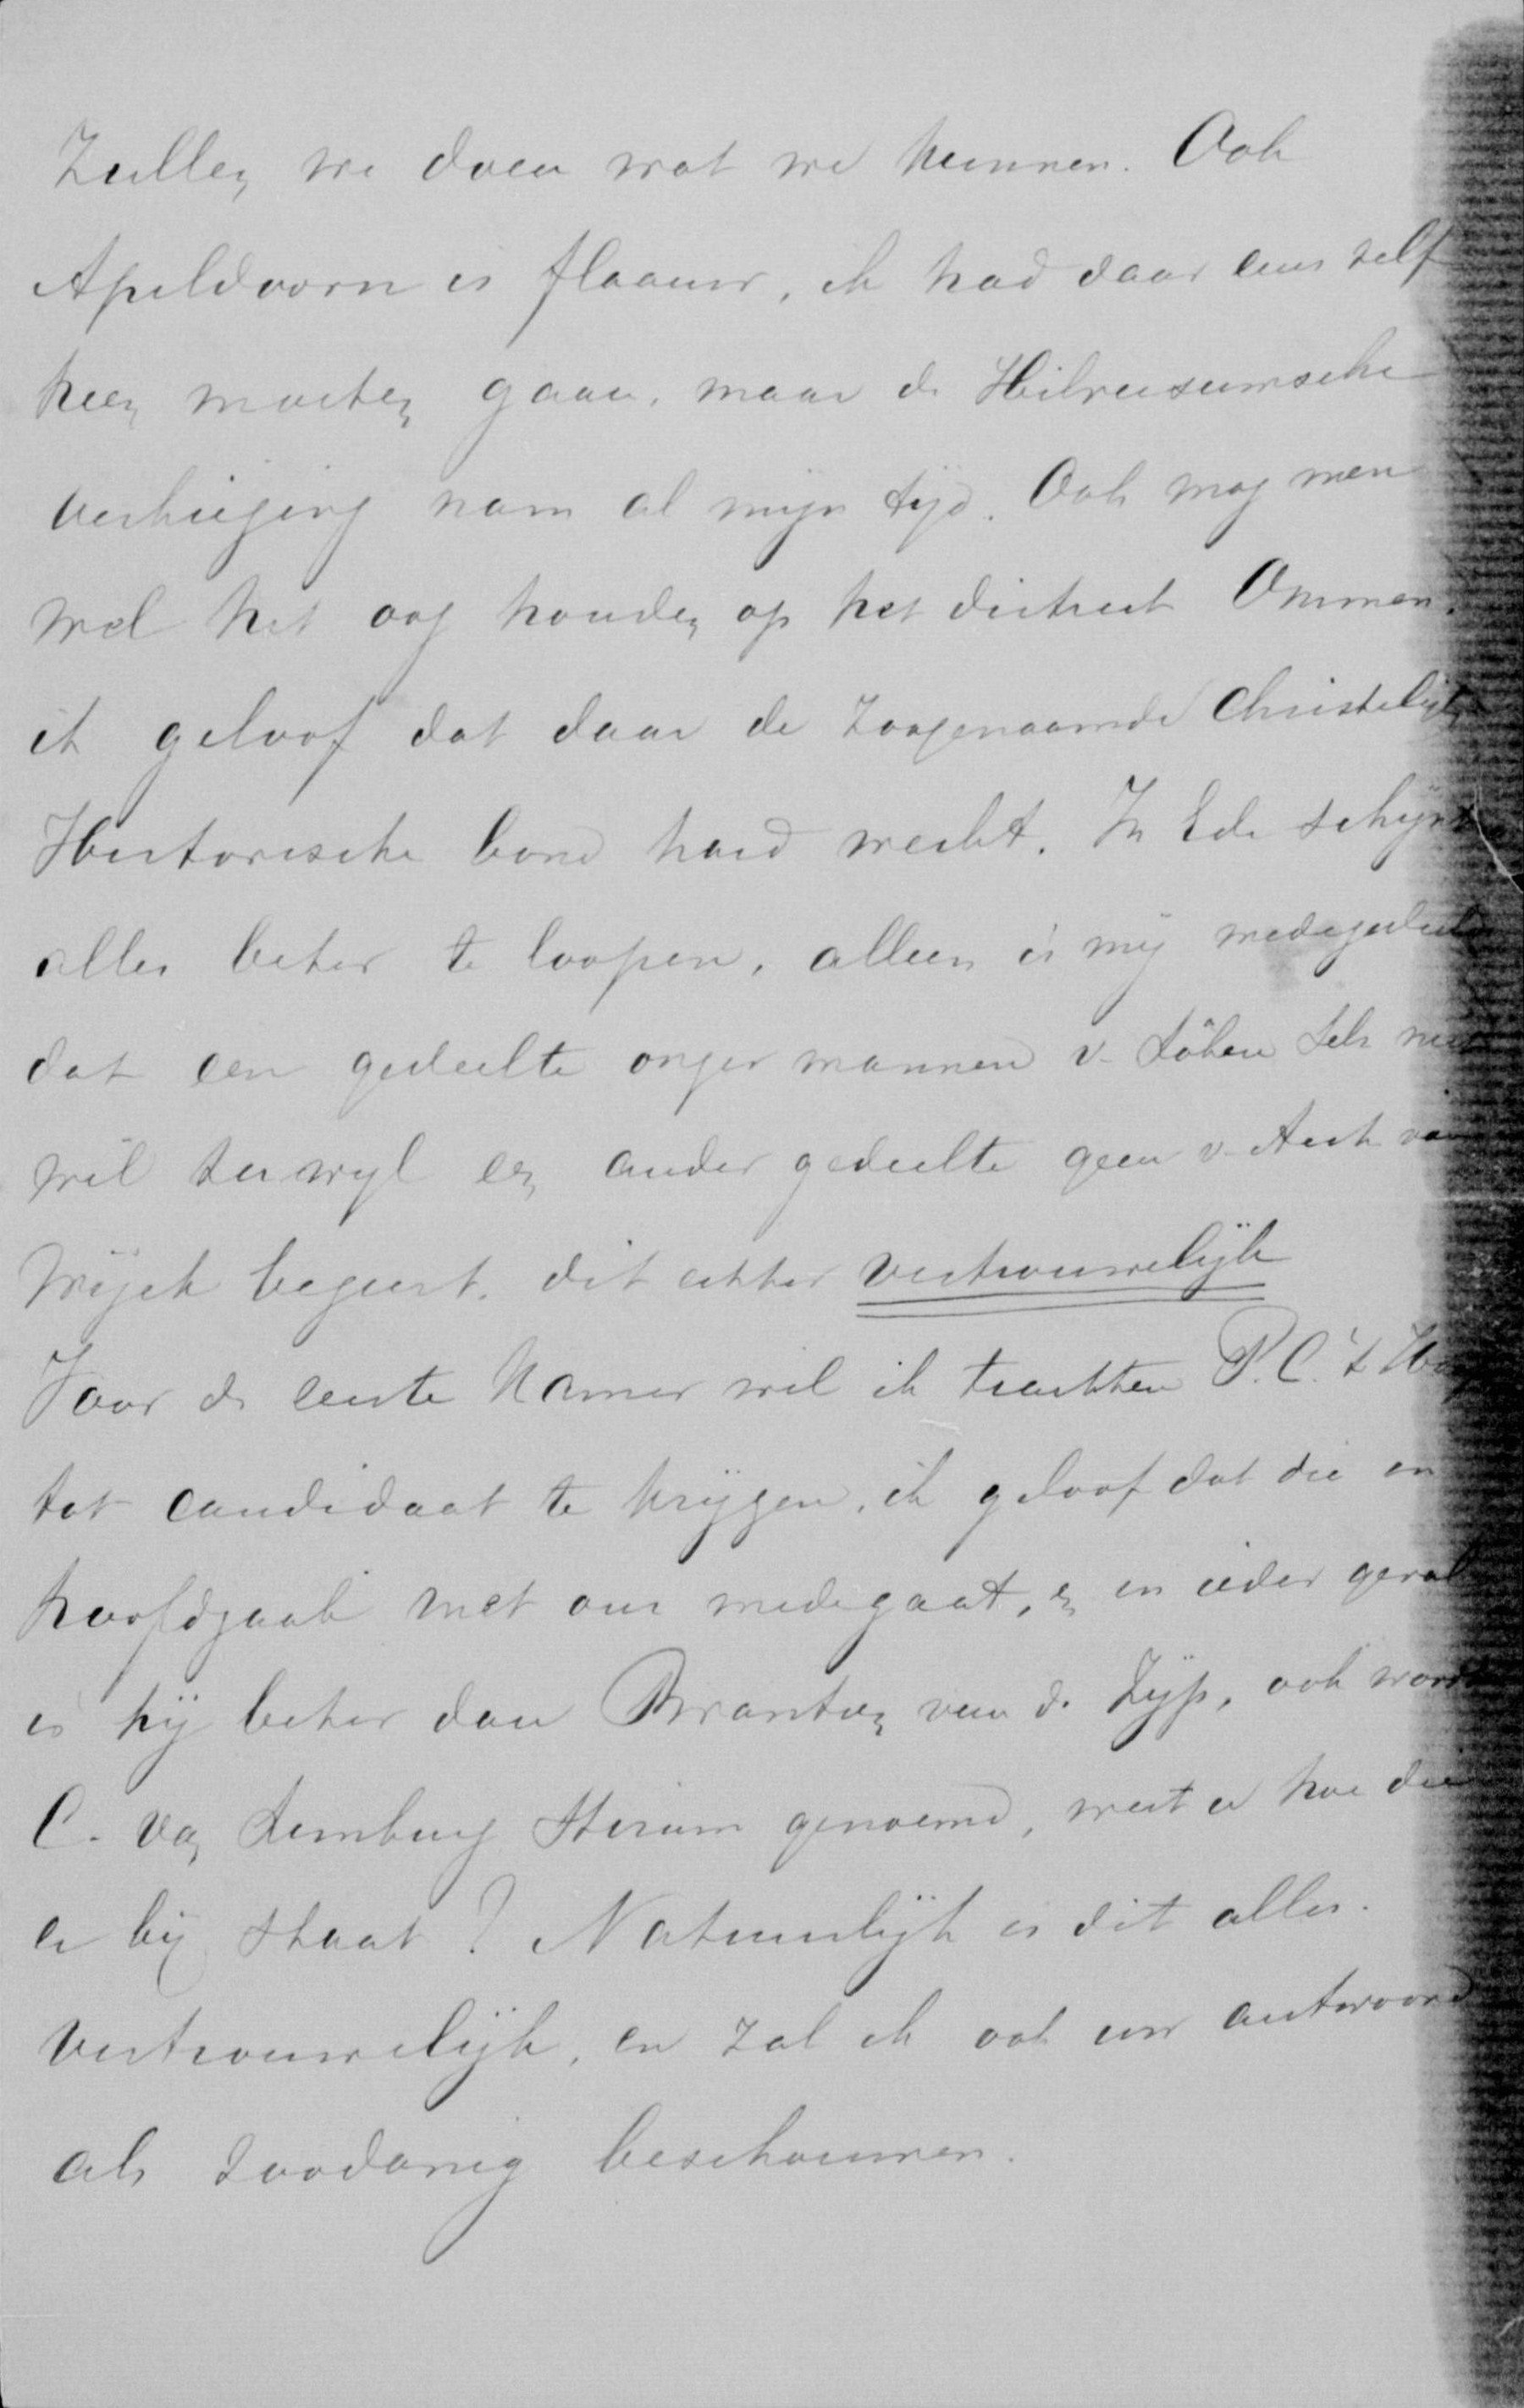 Zullen we doen wat we kunnen. Ook
Apeldoorn is flaauw, ik had daar eens zelf
heen moeten gaan, maar de Hilversumsche
verkiezing nam al mijn tijd. Ook mag men
wel het oog houden op het district Ommen.
ik geloof dat daar de zoogenaamde Christelijk
Historische bond hard werkt. In Ede schijnt
alles beter te loopen, alleen is mij medegedeeld
dat een gedeelte onzer mannen v. Löben Sels niet
wil terwyl een ander gedeelte geen v. Asch van
Wijck begeert. dit echter vertrouwelijk
Voor de eerste Kamer wil ik trachten P. C. 't
tot candidaat te krijgen, ik geloof dat die in
hoofdzaak met ons medegaat, en in ieder geval
is hij beter dan Brantsen van de Zyp, ook wordt
C. van Limburg Stirum genoemd, weet u hoe die
er bij staat? Natuurlijk is dit alles
vertrouwelijk, en zal ik ook uw antwoord
als zoodanig beschouwen.